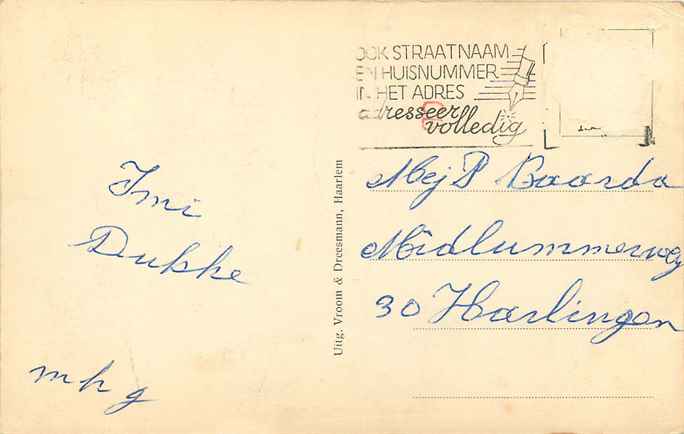 OOK STRAATNAAM
EN HUISNUMMER
IN HET ADRES
adresseer
volledig
Mej P Baarda
Midlummerweg
30 Harlingen
Imi
Dukke
m h g
Uitg. Vroom & Dreesmann, Haarlem